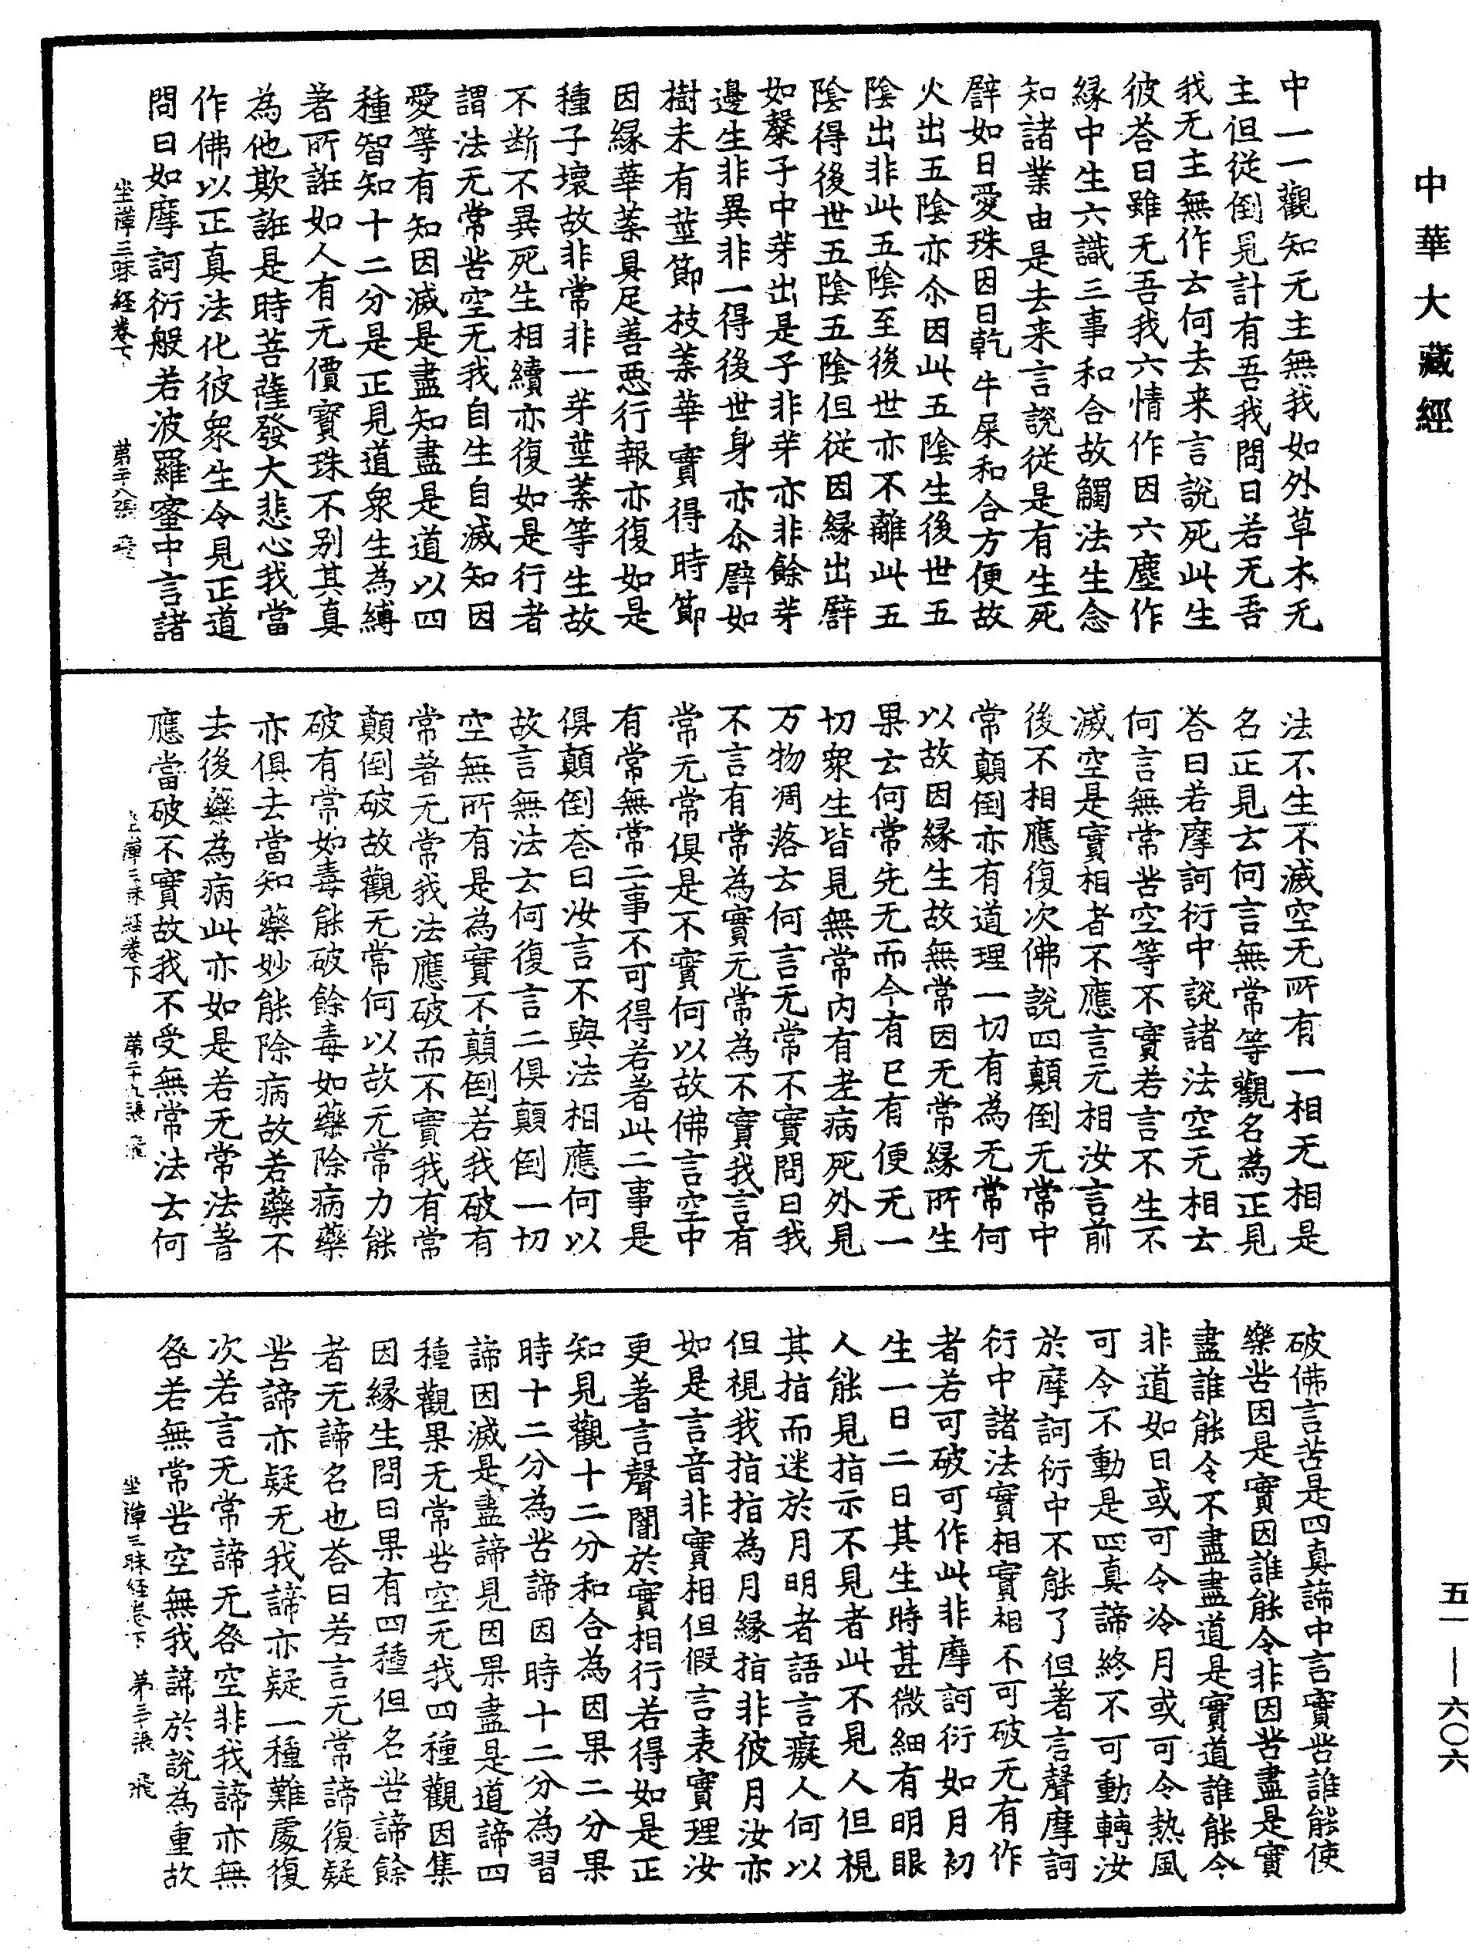 中華大藏經
中一一觀知无主無我如外草木无
主但從倒見計有吾我問曰若无吾
我无主無作云何去来言説死此生
彼荅曰雖无吾我六情作因六塵作
緣中生六識三事和合故觸法生念
知諸業由是去来言説從是有生死
譬如日愛珠因日乾牛屎和合方便故
火出五陰亦尒因此五陰生後世五
陰出非此五陰至後世亦不離此五
陰得後世五陰五陰但從因緣出譬
如穀子中芽出是子非芽亦非餘芽
邊生非異非一得後世身亦尒譬如
樹未有莖節枝葉華實得時節
因緣華葉具足善惡行報亦復如是
種子壞故非常非一芽莖葉等生故
不断不異死生相續亦復如是行者
謂法无常苦空无我自生自滅知因
愛等有知因滅是盡知盡是道以四
種智知十二分是正見道衆生為縛
著所誑如人有无價寶珠不別其真
為他欺誑是時菩薩發大悲心我當
作佛以正真法化彼衆生令見正道
問曰如摩訶衍般若波羅蜜中言諸
坐禪三昧經卷下　第二十八張　飛
法不生不滅空无所有一相无相是
名正見云何言無常等觀名為正見
荅曰若摩訶衍中説諸法空无相云
何言無常苦空等不實若言不生不
滅空是實相者不應言无相汝言前
後不相應復次佛説四顛倒无常中
常顛倒亦有道理一切有為无常何
以故因緣生故無常因无常緣所生
果云何常先无而今有已有便无一
切衆生皆見無常内有老病死外見
万物凋落云何言无常不實問曰我
不言有常為實无常為不實我言有
常无常俱是不實何以故佛言空中
有常無常二事不可得若著此二事是
俱顛倒荅曰汝言不與法相應何以
故言無法云何復言二俱顛倒一切
空無所有是為實不顛倒若我破有
常著无常我法應破而不實我有常
顛倒破故觀无常何以故无常力能
破有常如毒能破餘毒如藥除病藥
亦俱去當知藥妙能除病故若藥不
去後藥為病此亦如是若无常法著
應當破不實故我不受無常法云何
坐禪三昧經卷下　第二十九張　飛
破佛言苦是四真諦中言實苦誰能使
樂苦因是實因誰能令非因苦盡是實
盡誰能令不盡盡道是實道誰能令
非道如日或可令冷月或可令熱風
可令不動是四真諦終不可動轉汝
於摩訶衍中不能了但著言聲摩訶
衍中諸法實相實相不可破无有作
者若可破可作此非摩訶衍如月初
生一日二日其生時甚微細有明眼
人能見指示不見者此不見人但視
其指而迷於月明者語言癡人何以
但視我指指為月緣指非彼月汝亦
如是言音非實相但假言表實理汝
更著言聲闇於實相行若得如是正
知見觀十二分和合為因果二分果
時十二分為苦諦因時十二分為習
諦因滅是盡諦見因果盡是道諦四
種觀果无常苦空无我四種觀因集
因緣生問曰果有四種但名苦諦餘
者无諦名也荅曰若言无常諦復疑
苦諦亦疑无我諦亦疑一種難處復
次若言无常諦无咎空非我諦亦無
咎若無常苦空無我諦於説為重故
坐禪三昧經卷下　第三十張　飛
五一—六〇六